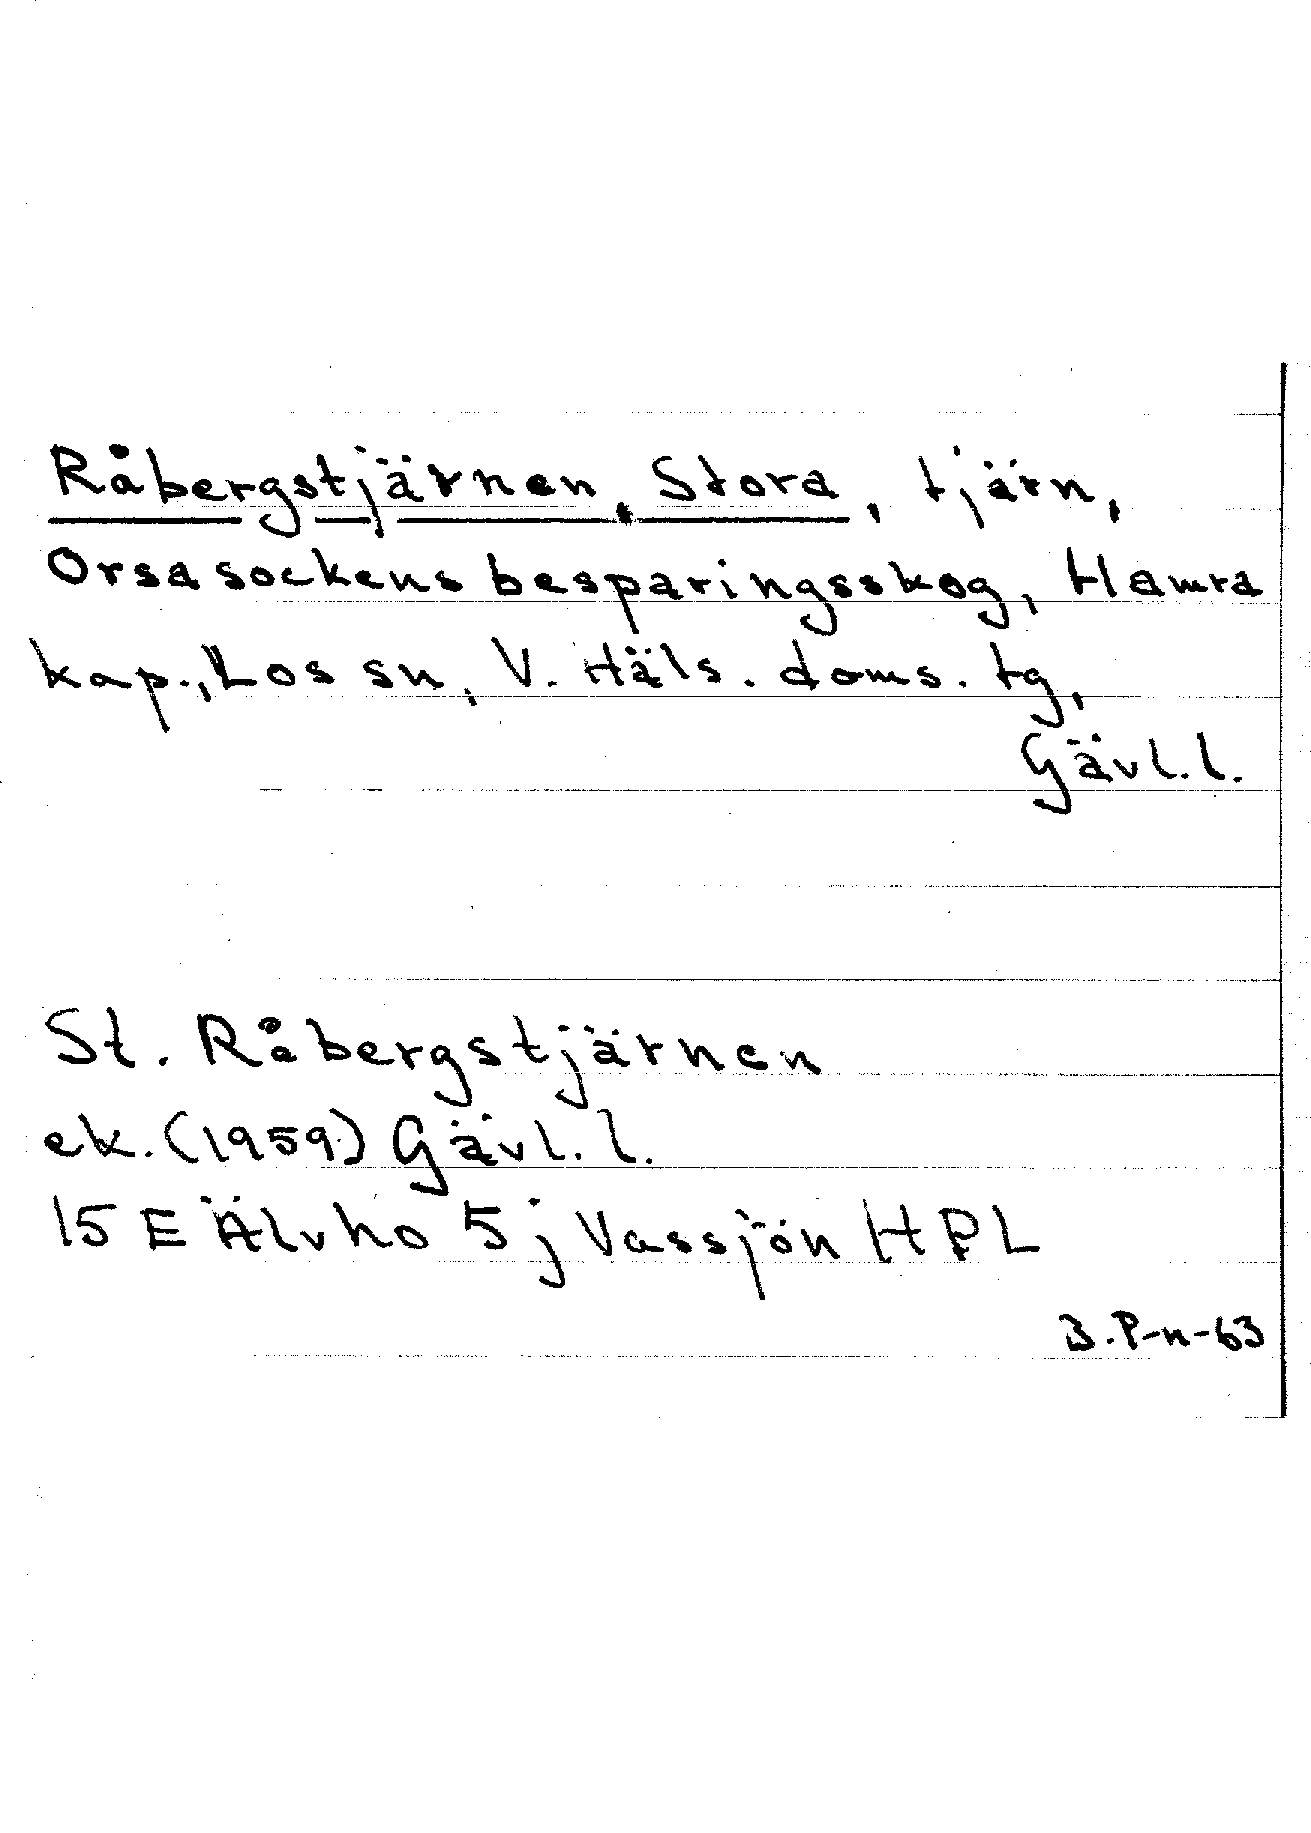 Råbergstjärnen, Stora, tjärn,
Orsa sockens besparingsskog, Hamra
kap., Los sn, V. Häls. doms. tg,
Gävl. l.
St. Råbergstjärnen
ek. (1959) Gävl. l.
15 E Älvho 5 j Vassjön HPL
B. P-n-63